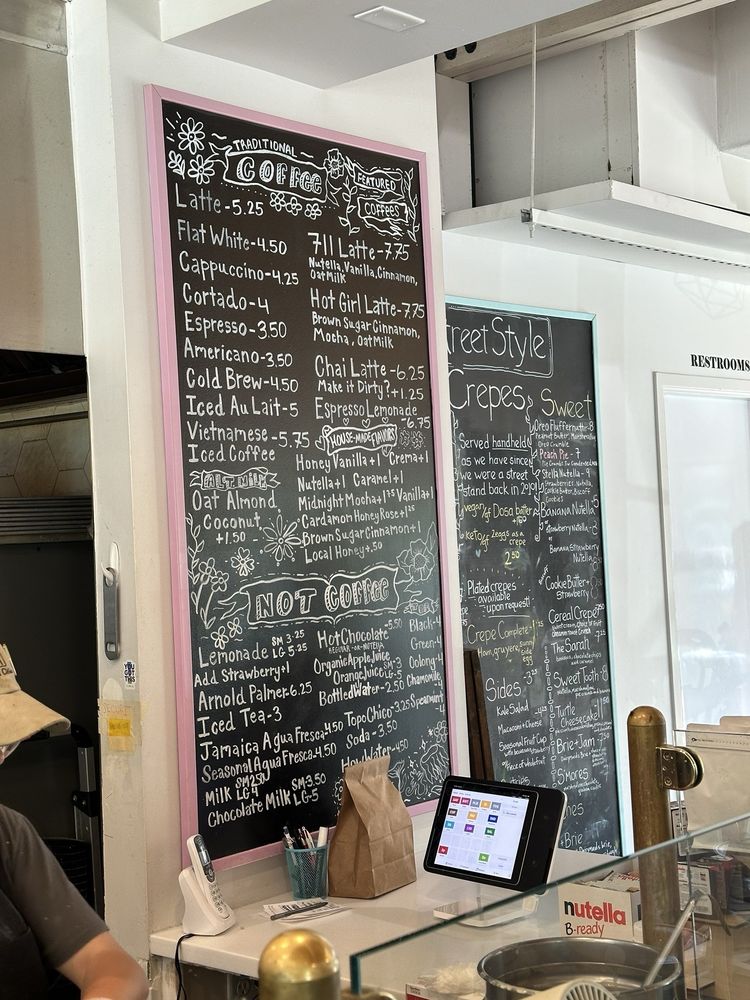 TRADITIONAL
COFFEE
Latte-5.25
Flat White-4.50
Cappuccino-4.25
Cortado-4
Espresso-3.50
Americano-3.50
Cold Brew-4.50
Iced Au Lait-5
Vietnamese-5.75
Iced Coffee
ALT. MILK
Oat Almond
Coconut
+1.50
FEATURED
COFFEES
711 Latte-7.75
Nutella, Vanilla, Cinnamon,
Oat Milk
Hot Girl Latte-7.75
Brown Sugar Cinnamon,
Mocha, Oat Milk
Chai Latte-6.25
Make it Dirty?+1.25
Espresso Lemonade
-6.75
HOUSE-MADE FLAVORS
Honey Vanilla+1 Crema+1
Nutella+1 Caramel+1
Midnight Mocha+1.75 Vanilla+1
Cardamon Honey Rose+1.25
Brown Sugar Cinnamon+1
Local Honey+.50
NOT COFFEE
Lemonade SM 3.25
LG 5.25
Add Strawberry+1
Arnold Palmer-6.25
Iced Tea-3
Jamaica Agua Fresca-4.50
Seasonal Agua Fresca-4.50
Milk SM 2.50
LG 4
Chocolate Milk SM 3.50
LG-5
Hot Chocolate-5.50
REGULAR-OR-NUTELLA
Organic Apple Juice
Orange Juice SM-3
LG-5
Bottled Water-2.50
Topo Chico-3.25
Soda-3.50
Black-4
Green-4
Oolong-4
Chamomile
Spearmint
treet Style
Crepes
Served handheld
as we have since
we were a street
stand back in 20
vegan/gf Dosa batter
keto/gf 2eggs as a
crepe
2.50
Plated crepes
available
upon request!
Crepe Complete-
Ham, gruyere, sunny
side
egg
Sides-3.25
Kale Salad
Macaroni + Cheese
Seasonal Fruit Cup
Piece of whole fruit
Sweet
Oreo Fluffernutter-8
Peanut Butter, Marshmallow
Oreo Crumble
Peach Pie-7
Stella Nutella-9
Strawberries, Nutella,
Cookie Butter, Biscoff
Cookies
Banana Nutella
Strawberry Nutella
Banana Strawberry
Nutella
Cookie Butter+
Strawberry
Cereal Crepe
The Sarah
Sweet Tooth-8
Turtle
Cheesecake
Brie+Jam
S'mores
RESTROOMS
nutella
B-ready